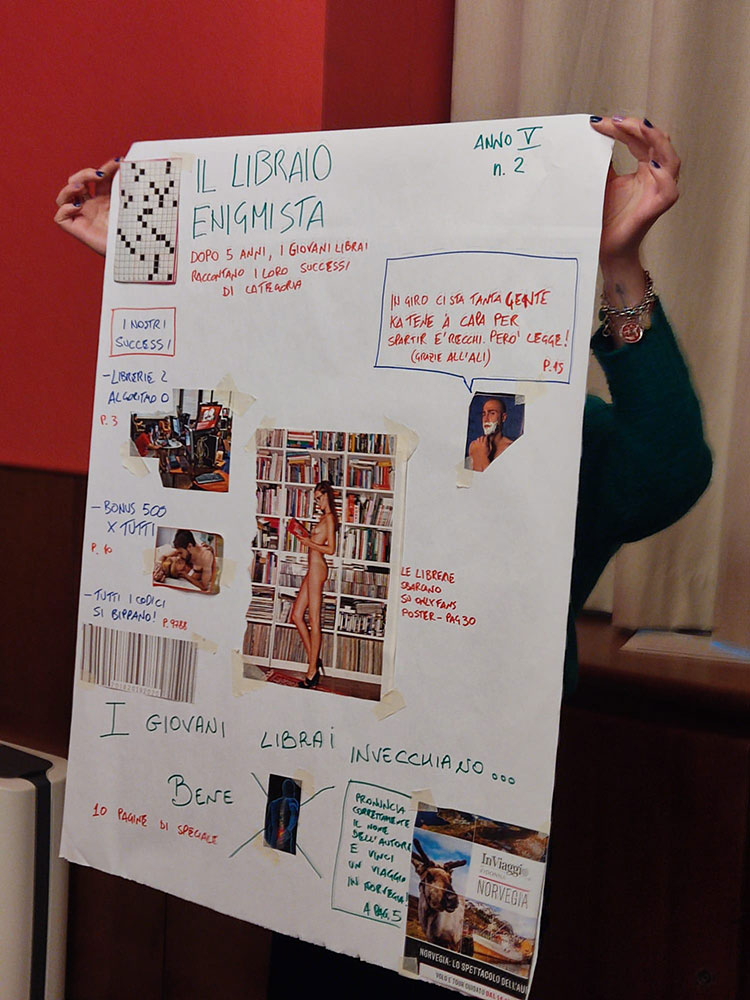 IL LIBRAIO
ENIGMISTA
ANNO V
n. 2
DOPO 5 ANNI, I GIOVANI LIBRAI
RACCONTANO I LORO SUCCESSI
DI CATEGORIA
IN GIRO CI STA TANTA GENTE
KA TENE À CAPA PER
SPARTIR E' RECCHI. PERO' LEGGE!
(GRAZIE ALL'ALI)
P. 15
I NOSTRI
SUCCESSI
- LIBRERIE 2
ALGORITMO 0
P. 3
- BONUS 500
X TUTTI
P. 10
- TUTTI I CODICI
SI BIPPANO!
P. 9788
LE LIBRERIE
SBARCANO
SU ONLYFANS
POSTER - PAG 30
I GIOVANI LIBRAI INVECCHIANO...
BENE
10 PAGINE DI SPECIALE
PRONUNCIA
CORRETTAMENTE
IL NOME
DELL'AUTORE
E VINCI
UN VIAGGIO
IN NORVEGIA!
A PAG. 5
InViaggio
NORVEGIA
NORVEGIA: LO SPETTACOLO DELL'AU
VOLO E TOUR GUIDATO DAL